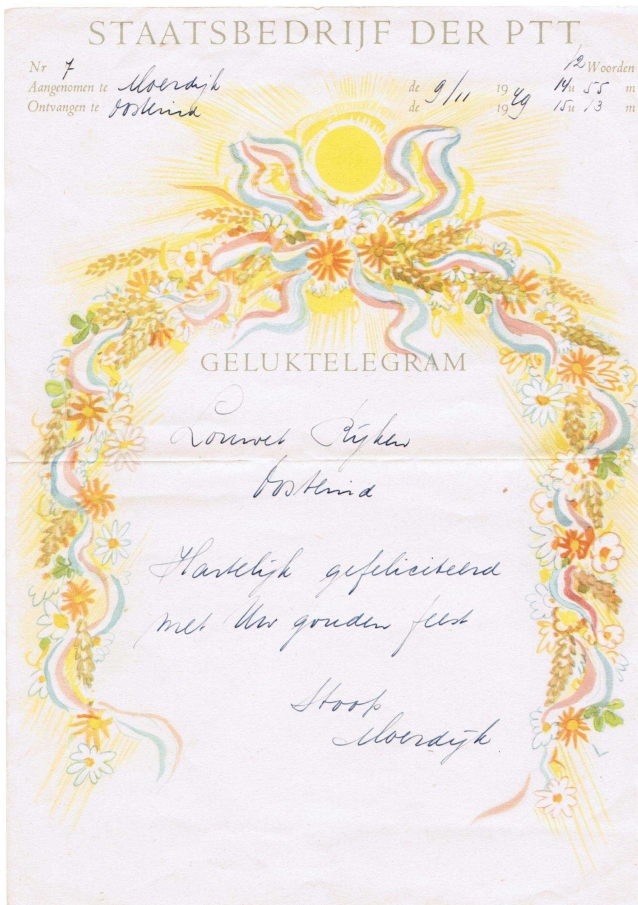 STAATSBEDRIJF DER PTT
Nr 7 12 Woorden
Aangenomen te Moerdijk de 9/11 1949 14u 55 m
Ontvangen te Oosteind de 1949 15u 13 m
GELUKTELEGRAM
Louwet Rijken
Oosteind
Hartelijk gefeliciteerd
met Uw gouden feest
Stoop
Moerdijk